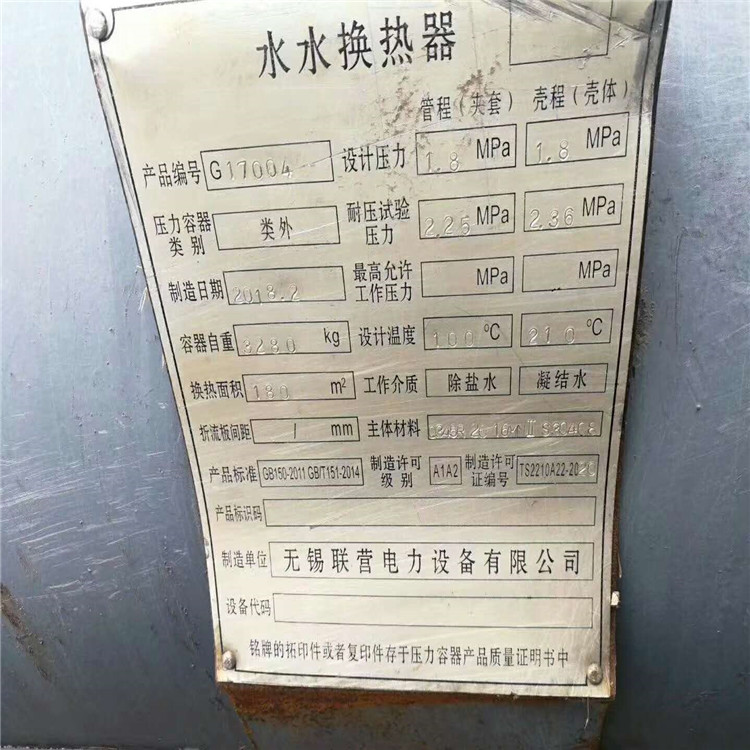 水水换热器
管程(夹套) 壳程(壳体)
产品编号 G17004 设计压力 1.8 MPa 1.8 MPa
压力容器类别 类外 耐压试验压力 2.25 MPa 2.36 MPa
制造日期 2018.2 最高允许工作压力 MPa MPa
容器自重 3280 kg 设计温度 100 ℃ 210 ℃
换热面积 180 m² 工作介质 除盐水 凝结水
折流板间距 / mm 主体材料
产品标准 GB150-2011 GB/T151-2014 制造许可级别 A1A2 制造许可证编号 TS2210A22-2020
产品标识码
制造单位 无锡联营电力设备有限公司
设备代码
铭牌的拓印件或者复印件存于压力容器产品质量证明书中